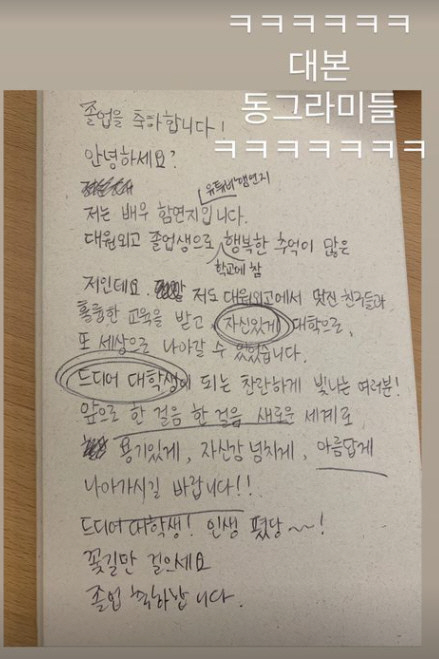 ㅋㅋㅋㅋㅋㅋ
대본
동그라미들
ㅋㅋㅋㅋㅋㅋㅋ
졸업을 축하합니다!
안녕하세요?
유튜버 햄연지
저는 배우 함연지입니다.
대원외고 졸업생으로 행복한 추억이 많은
학교에 참
저인데요. 저도 대원외고에서 멋진 친구들과
훌륭한 교육을 받고, 자신있게 대학으로,
또 세상으로 나아갈 수 있었습니다.
드디어 대학생이 되는 찬란하게 빛나는 여러분!
앞으로 한 걸음 한 걸음 새로운 세계로
용기있게, 자신감 넘치게, 아름답게
나아가시길 바랍니다!!
드디어 대학생! 인생 폈당~~!
꽃길만 걸으세요
졸업 축하합니다.